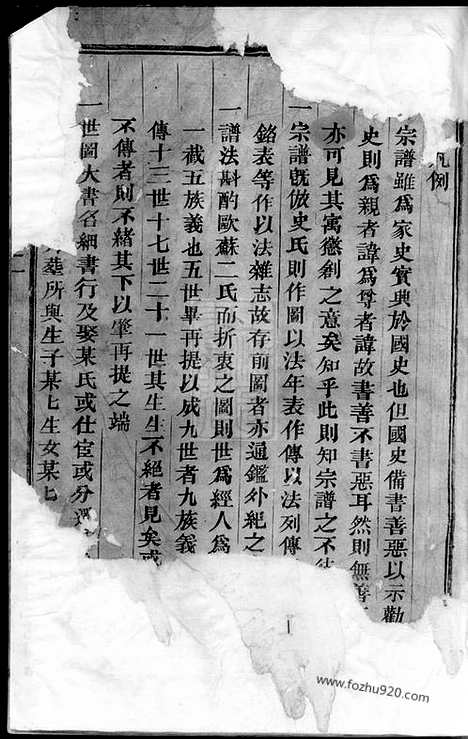 凡例
宗譜雖為家史實興於國史也但國史備書善惡以示勸
史則為親者諱為尊者諱故書善不書惡耳然則無善
亦可見其寓懲創之意矣知乎此則知宗譜之不
一宗譜既倣史氏則作圖以法年表作傳以法列傳
銘表等作以法雜志故存前圖者亦通鑑外紀之
一譜法斟酌歐蘇二氏而折衷之圖則世為經人為
一截五族義也五世畢再提以成九世者九族義
傳十三世十七世二十一世其生生不絕者見矣或
不傳者則不緒其下以肇再提之端
一世圖大書名細書行及娶某氏或仕宦或分遷
墓所與生子某七生女某七
www.fozhu920.com